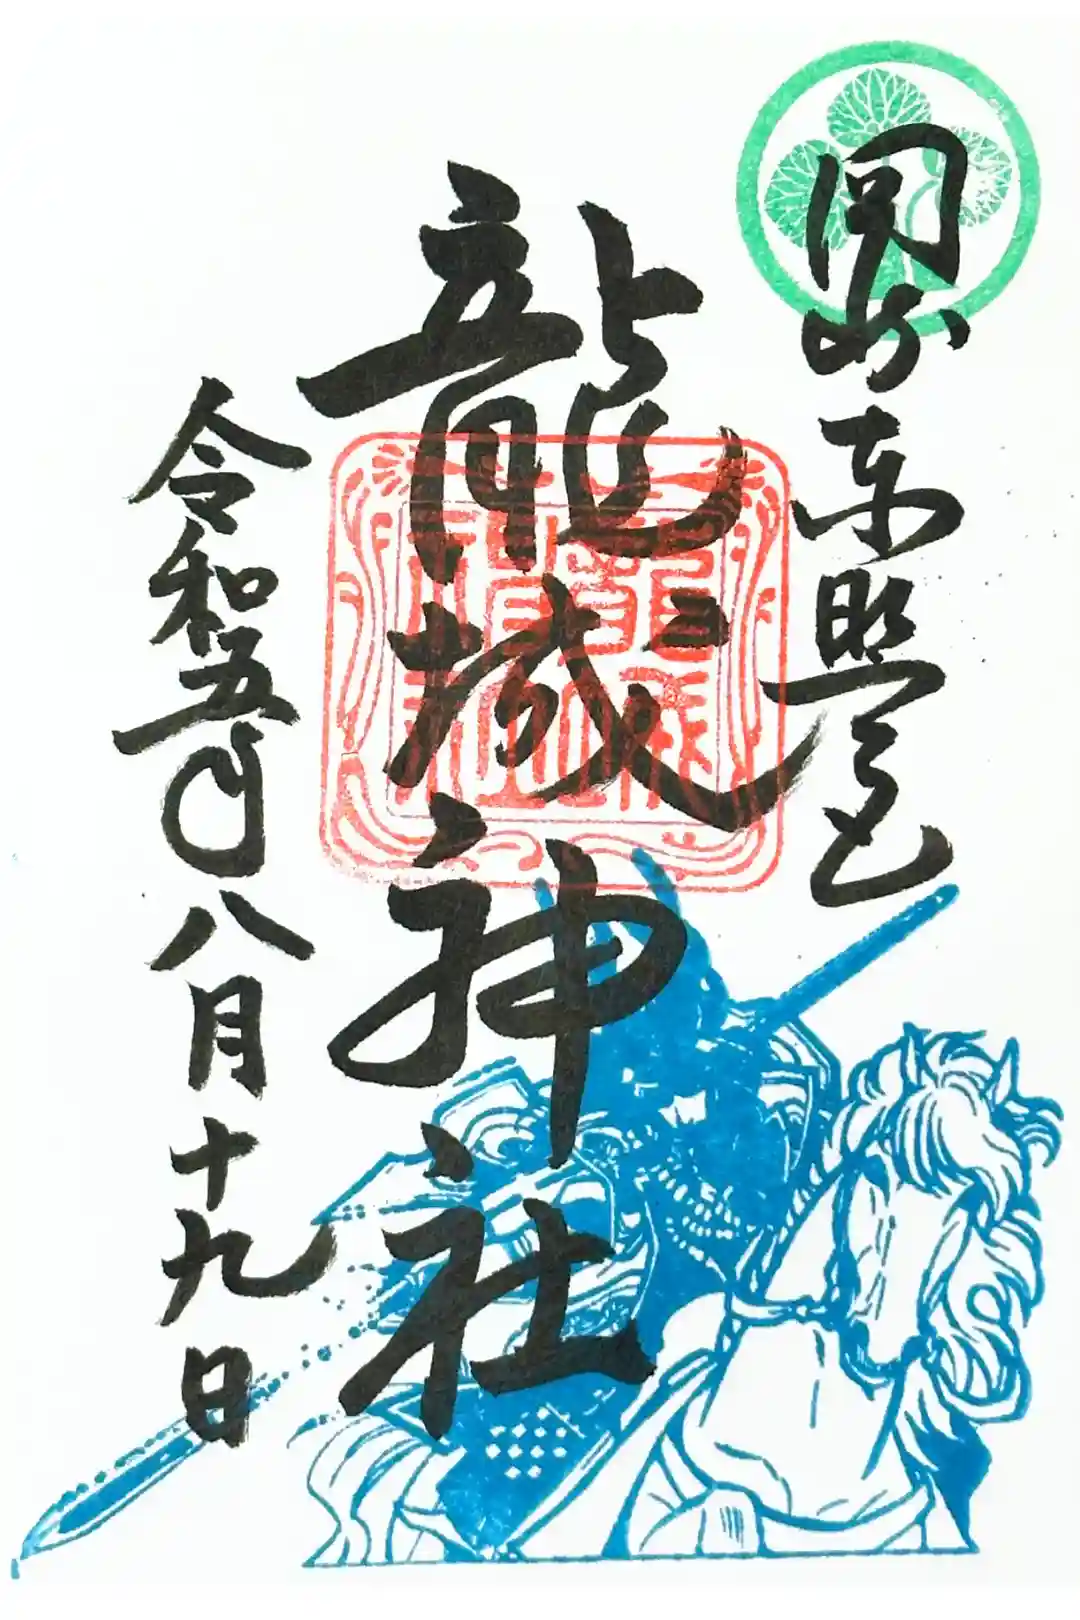 岡崎東照宮
龍城神社
令和五年八月十九日